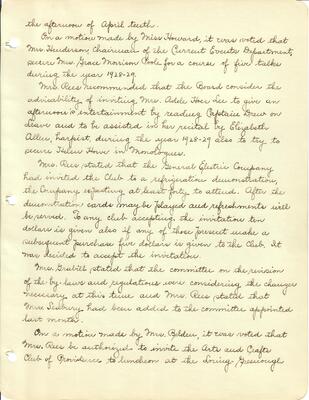 the afternoon of April tenth.
On a motion made by Miss Howard, it was voted that
Mrs. Henderson chairman of the Current Events Department,
secure Mrs. Grace Morrison Poole for a course of five talks
during the year 1928-29.
Mrs. Rees recommended that the Board consider the
advisability of inviting Mrs. Adele Hoes Lee to give an
afternoon's entertainment by reading Captain Drew on
leave and to be assisted in her recital by Elizabeth
Allen, harpist, during the year 1928-29 also to try to
secure Helen Howe in Monologues.
Mrs. Rees stated that the General Electric Company
had invited the Club to a refrigeration demonstration,
the Company expecting at least forty to attend. After the
demonstration cards may be played and refreshments will
be served. To any club accepting the invitation ten
dollars is given also if any of those present make a
subsequent purchase five dollars is given to the Club. It
was decided to accept the invitation.
Mrs. stated that the committee on the revision
of the by-laws and regulations were considering the changes
necessary at this time and Mrs. Rees stated that
Mrs. Seabury had been added to the committee appointed
last month.
On a motion made by Mrs. Belden, it was voted that
Mrs. Rees be authorized to invite the Arts and Crafts
Club of Providence to luncheon at the Loring Greenough